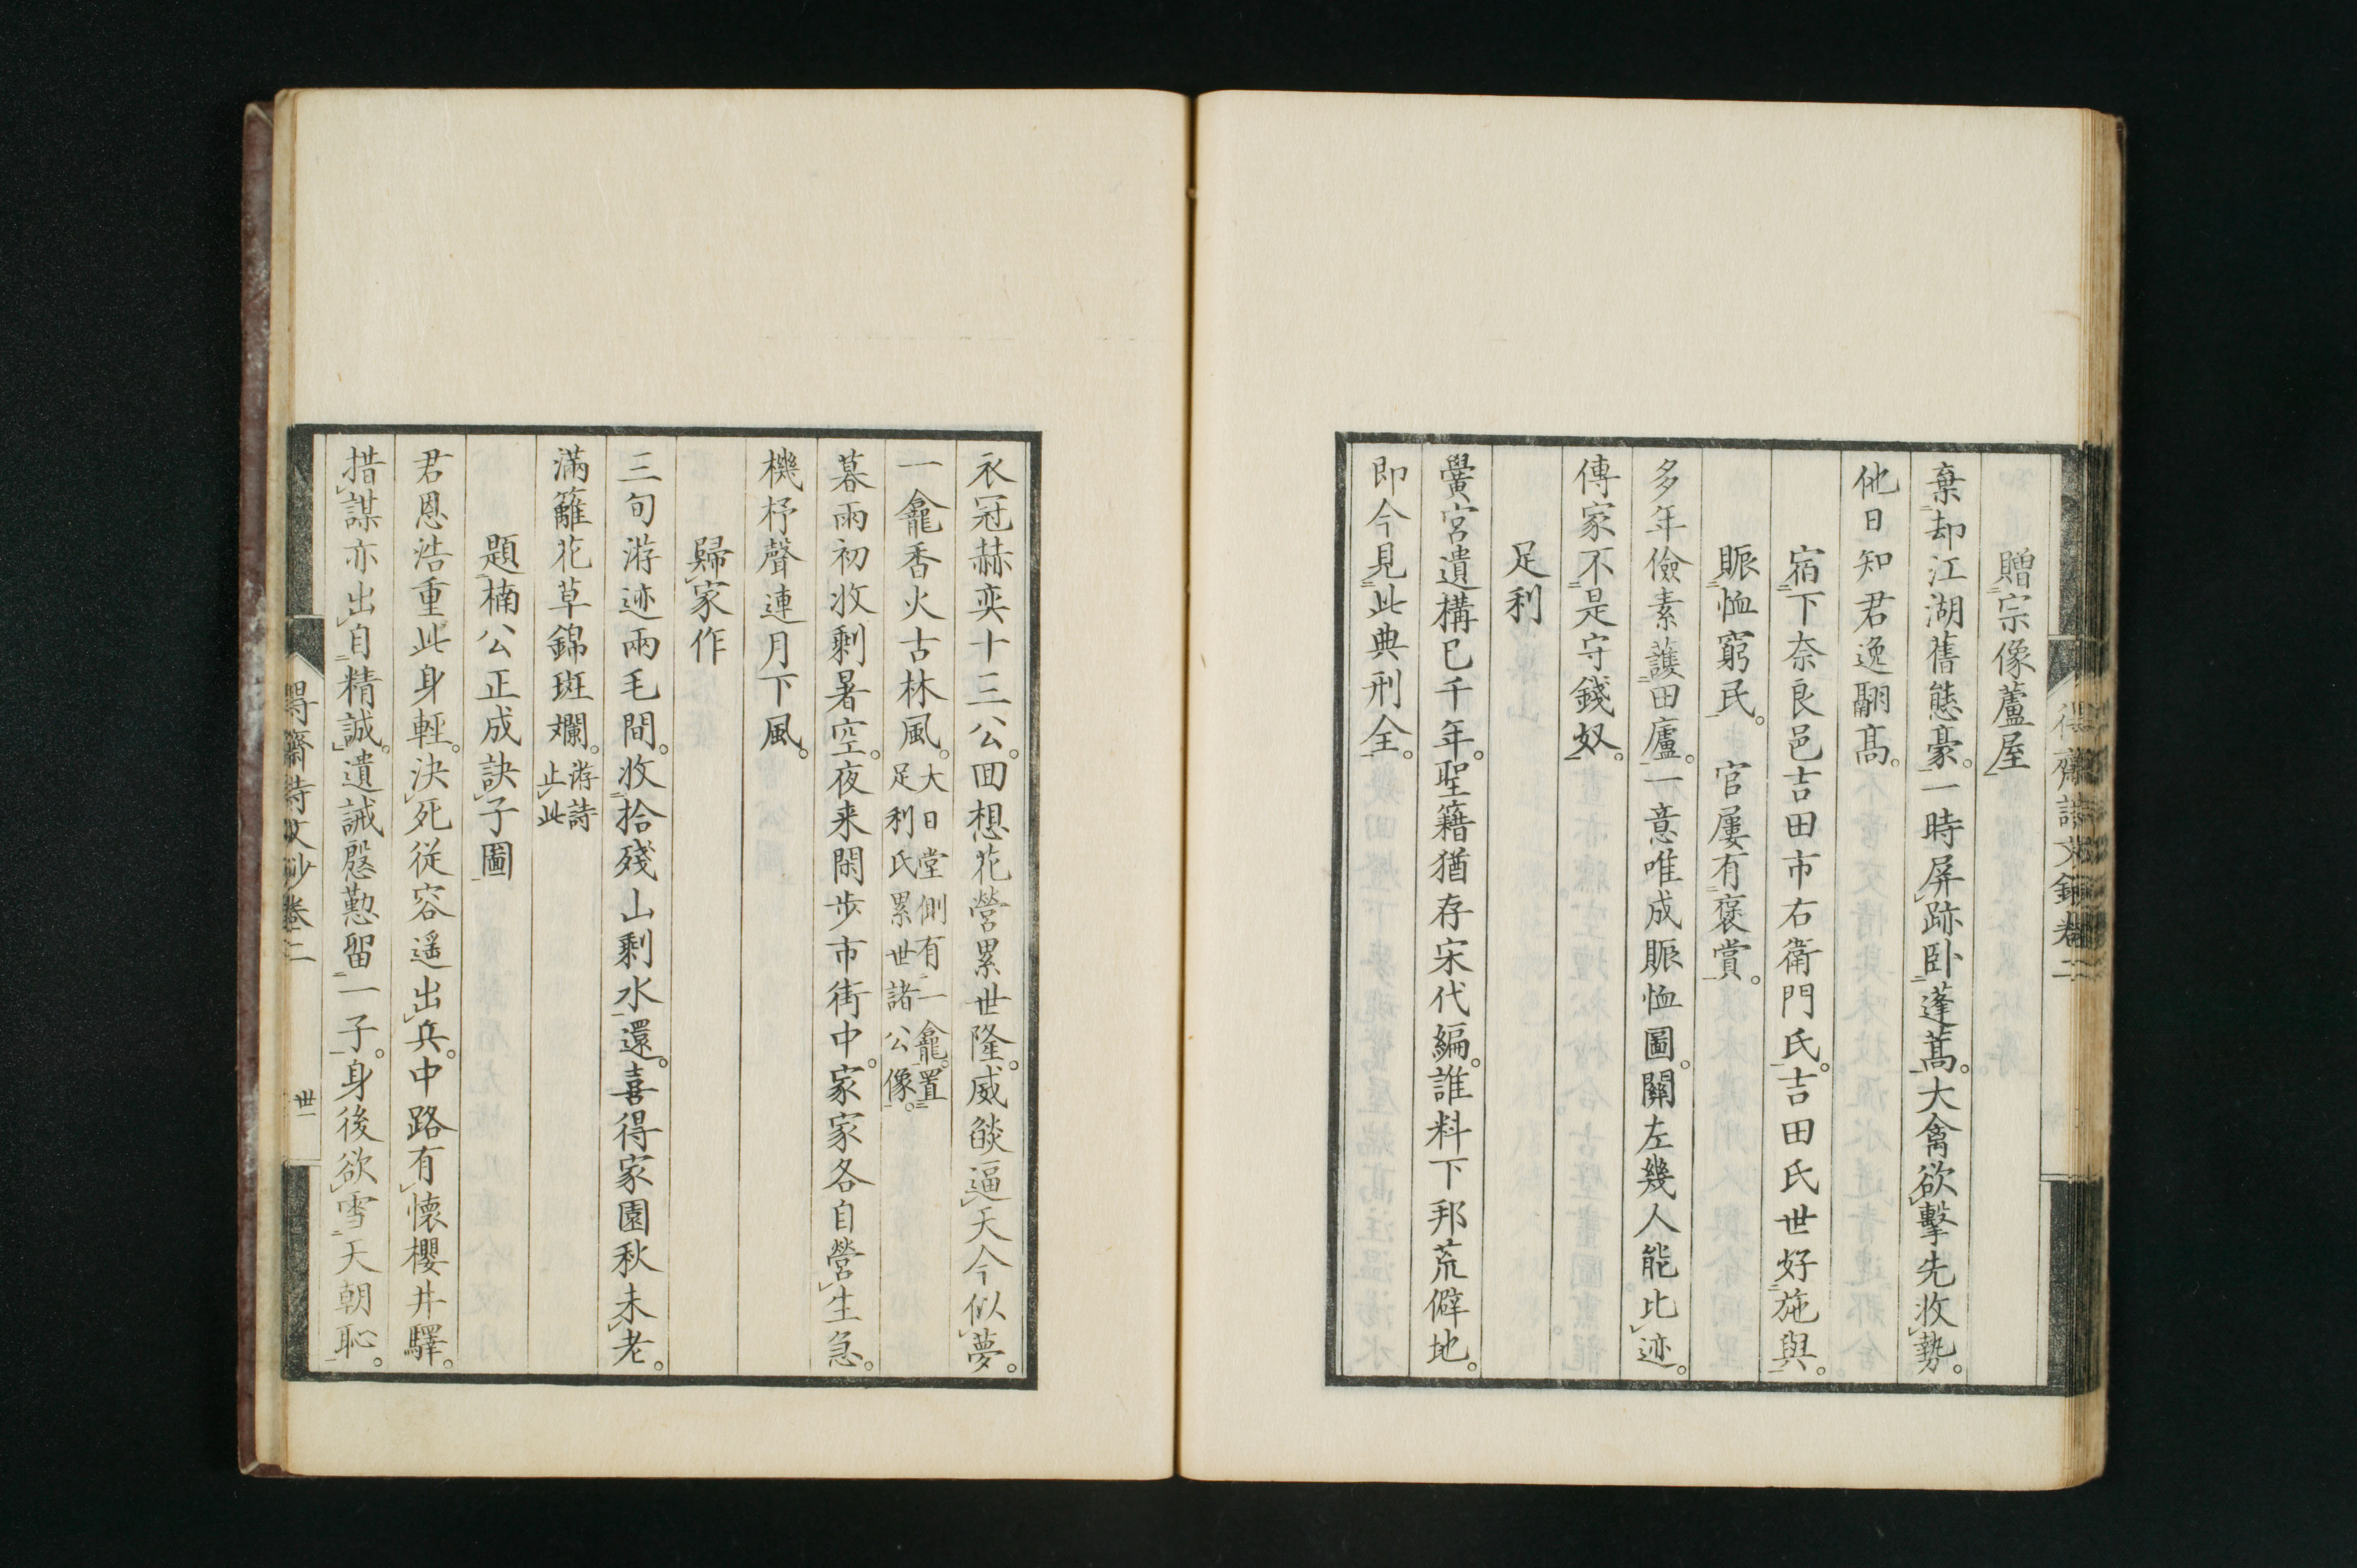 贈宗像蘆屋
棄却江湖舊態豪。一時屏跡卧蓬蒿。大禽欲擊先收勢。
他日知君逸翮高。
宿下奈良邑吉田市右衛門氏。吉田氏世好施與。
賑恤窮民。官屢有褒賞。
多年儉素護田廬。一意唯成賑恤圖。關左幾人能比迹。
傳家不是守錢奴。
足利
黌宮遺構已千年。聖籍猶存宋代編。誰料下邦荒僻地。
即今見此典刑全。
衣冠赫奕十三公。囬想花營累世隆。威燄逼天今似夢。
一龕香火古林風。大日堂側有一龕。置足利氏累世諸公像。
暮雨初收剩暑空。夜来閑步市街中。家家各自營生急。
機杼聲連月下風。
歸家作
三旬游迹兩毛間。收拾殘山剩水還。喜得家園秋未老。
滿籬花草錦斑斕。游詩止此
題楠公正成訣子圖
君恩浩重此身輕。決死從容遥出兵。中路有懷櫻井驛。
措謀亦出自精誠。遺誡慇懃留一子。身後欲雪天朝恥。
得齋詩文鈔卷二
齋詩文鈔卷二
卅一